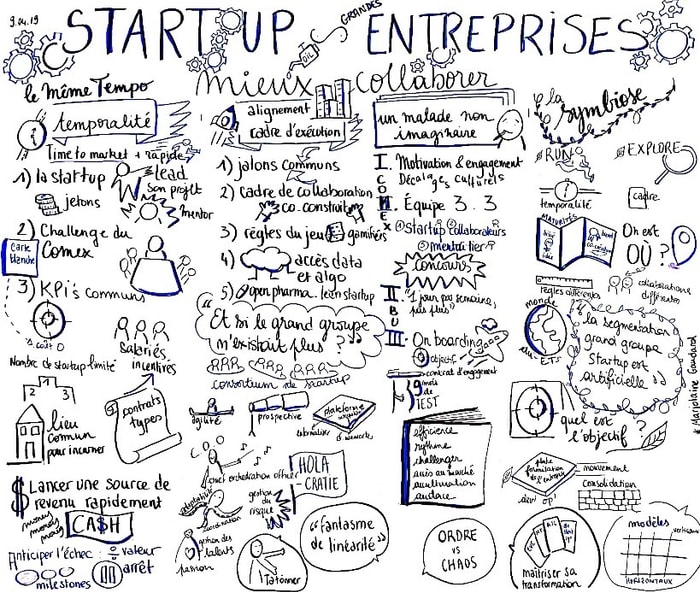 9.04.19
START UP
GRANDES
ENTREPRISES
OIL
mieux collaborer
le même Tempo
temporalité
Time to market + rapide
1) la startup
jetons
lead
son projet
mentor
2) Challenge du
Comex
Carte
blanche
3) KPi's communs
coût 0
Nombre de startup limité
Salariés
incentivés
1 2 3
lieu
commun
pour incarner
contrats
types
$ Lancer une source de
revenu rapidement
money
money
money
CA$H
Anticiper l'échec :
valeur
arrêt
milestones
alignement
cadre d'exécution
1) jalons communs
2) Cadre de collaboration
co-construit
3) règles du jeu gamifiées
4) accès data
et algo
5) open pharma. lean startup
"Et si le grand groupe
n'existait plus ?"
consortium de startup
agilité
prospective
plateforme
chief orchestration officer
HOLA
CRATIE
gestion
du
risque
gestion
des
talents
passion
Tatonner
"fantasme
de linéarité"
un malade non
imaginaire
I. Motivation & engagement
Décalages culturels
COMEX
Équipe 3.3
startup collaborateurs
métier
concours
II.
BU
"1 jour par semaine,
pas plus"
III. On boarding
objectif
contrat d'engagement
9 mois
de
TEST
efficience
rythme
challenger
accès au marché
acculturation
audace
ORDRE
vs
CHAOS
la
symbiose
RUN
EXPLORE
temporalité
cadre
MATURITÉS
On est
OÙ ?
règles différentes
collaborations
différentes
monde
des ETI
"la segmentation
grand groupe
Startup est
artificielle"
quel est
l'objectif ?
mouvement
consolidation
maîtriser sa
transformation
modèles
verticaux
HORIZONTAUX